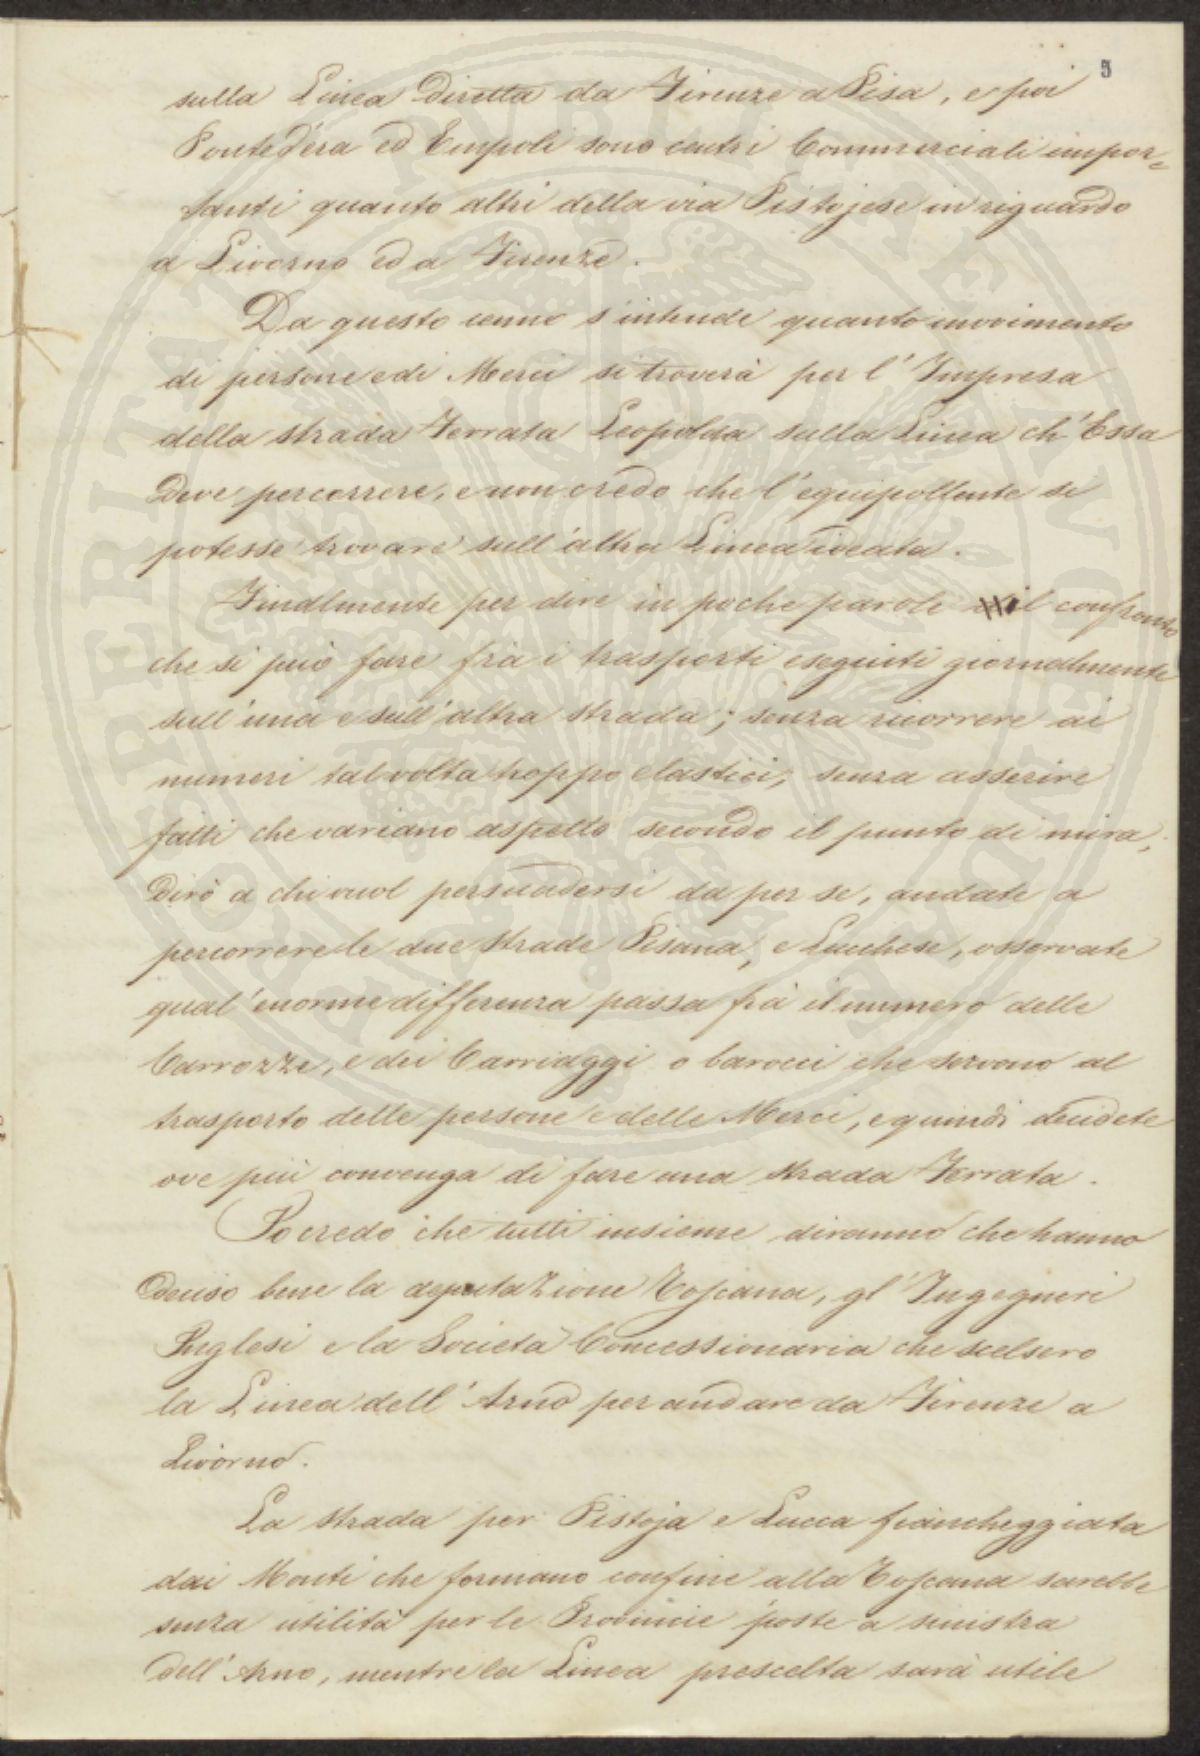 5
sulla Linea Diretta da Firenze a Pisa, e poi
Pontedera ed Empoli sono centri Commerciali impor=
tanti quanto altri della via Pistojese in riguardo
a Livorno ed a Firenze.
Da questo cenno s'intende quanto movimento
di persone e di Merci si troverà per l'Impresa
della strada Ferrata Leopolda sulla Linea ch'Essa
Deve percorrere, e non credo che l'equipollente si
potesse trovare sull'altra Linea ideata.
Finalmente per dire in poche parole il confronto
che si può fare frà i trasporti eseguiti giornalmente
sull'una e sull'altra strada; senza ricorrere ai
numeri talvolta troppo elastici, senza asserire
fatti che variano aspetto secondo il punto di mira,
Dirò a chi vuol persuadersi da per se, andate a
percorrere le due strade Pisana, e Lucchese, osservate
qual'enorme differenza passa frà il numero delle
Carrozze, e dei Carriaggi o barocci che servono al
trasporto delle persone e delle Merci, e quindi decidete
ove più convenga di fare una strada Ferrata.
Io credo che tutti insieme diranno che hanno
Deciso bene la deputazione Toscana, gl'Ingegneri
Inglesi e la Società Concessionaria che scelsero
la Linea dell'Arno per andare da Firenze a
Livorno.
La strada per Pistoja e Lucca fiancheggiata
dai Monti che formano confine alla Toscana sarebbe
senza utilità per le Provincie poste a sinistra
Dell'Arno, mentre la Linea prescelta sarà utile